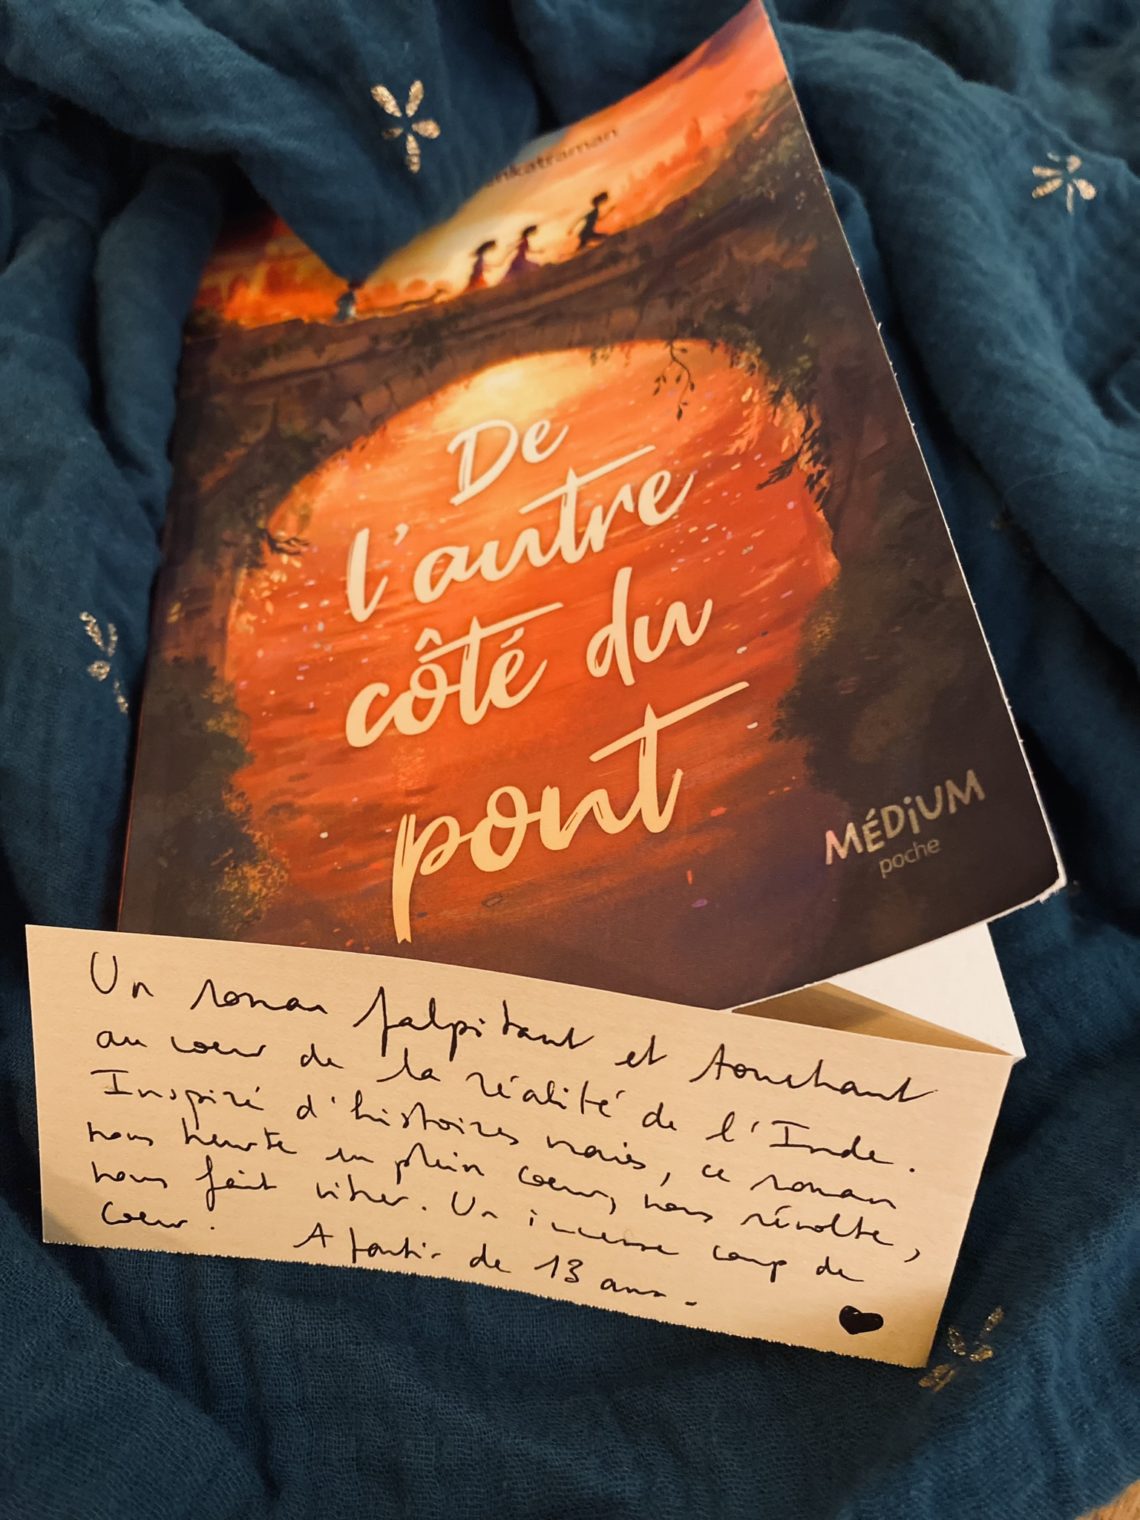 nkatraman
De
l'autre
côté du
pont
MÉDIUM
poche
Un roman palpitant et touchant
au coeur de la réalité de l'Inde.
Inspiré d'histoires vraies, ce roman
nous heurte en plein coeur, nous révolte,
nous fait vibrer. Un immense coup de
coeur.
A partir de 13 ans.